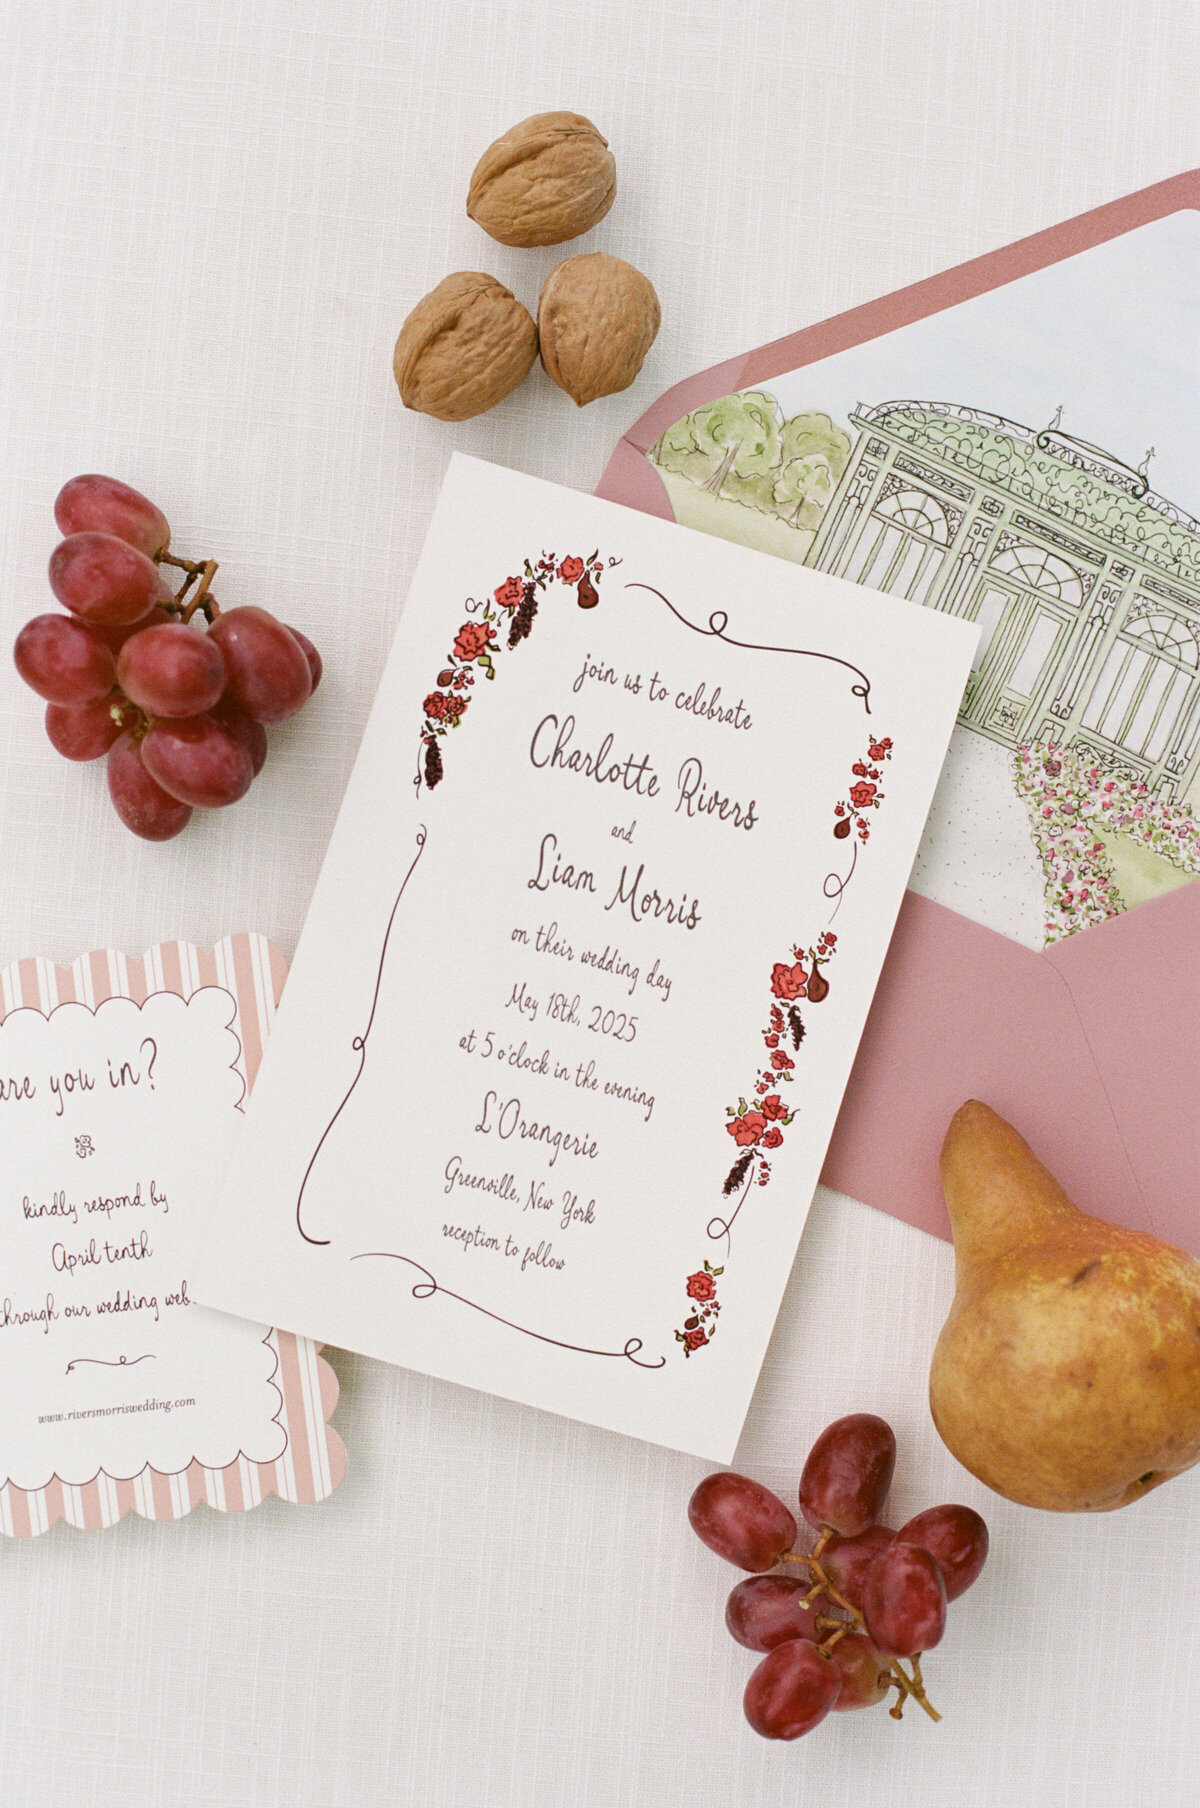 join us to celebrate
Charlotte Rivers
and
Liam Morris
on their wedding day
May 18th, 2025
at 5 o'clock in the evening
L'Orangerie
Greenville, New York
reception to follow
are you in?
kindly respond by
April tenth
through our wedding web
www.riversmorriswedding.com